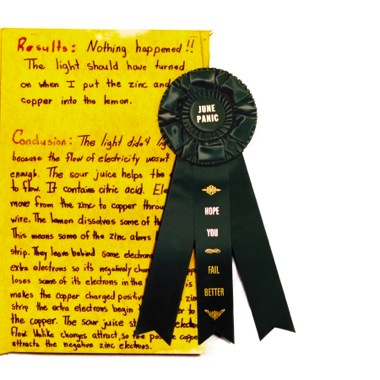 Results: Nothing happened!!
The light should have turned
on when I put the zinc and
copper into the lemon.
Conclusion: The light didn't lig
because the flow of electricity wasn't
enough. The sour juice helps the
to flow. It contains citric acid. Ele
move from the zinc to copper throug
wire. The lemon dissolves some of th
This means some of the zinc atoms
strip. They leave behind some electrons
extra electrons so its negatively char
loses some of its electrons in the
makes the copper charged positive
strip the extra electrons begin to
the copper. The sour juice st elect
flow. Unlike charges attract, so the positive copper
attracts the negative zinc electrons.
JUNE
PANIC
HOPE
YOU
FAIL
BETTER